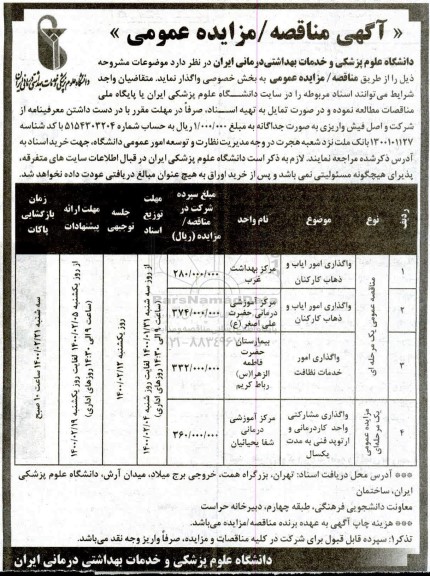 « آگهی مناقصه/مزایده عمومی »
دانشگاه علوم پزشکی و خدمات بهداشتی درمانی ایران
دانشگاه علوم پزشکی و خدمات بهداشتی‌درمانی ایران در نظر دارد موضوعات مشروحه
ذیل را از طریق مناقصه/ مزایده عمومی به بخش خصوصی واگذار نماید. متقاضیان واجد
شرایط می‌توانند اسناد مربوطه را در سایت دانشگاه علوم پزشکی ایران یا پایگاه ملی
مناقصات مطالعه نموده و در صورت تمایل به تهیه اسناد، صرفاً در مهلت مقرر با در دست داشتن معرفینامه از
شرکت و اصل فیش واریزی به صورت جداگانه به مبلغ ۱/۰۰۰/۰۰۰ ریال به حساب شماره ۵۱۵۴۳۰۳۲۰۴ با کد شناسه
۱۳۰۰۱۰۱۱۲۷ بانک ملت نزد شعبه هجرت در وجه مدیریت نظارت و توسعه امور عمومی دانشگاه، جهت خرید اسناد به
آدرس ذکر شده مراجعه نمایند. لازم به ذکر است دانشگاه علوم پزشکی ایران در قبال اطلاعات سایت های متفرقه،
پذیرای هیچگونه مسئولیتی نمی باشد و پس از خرید اوراق به هیچ عنوان مبالغ دریافتی عودت داده نخواهد شد.
ردیف
نوع
موضوع
نام واحد
مبلغ سپرده شرکت در مناقصه/ مزایده (ریال)
مهلت توزیع اسناد
جلسه توجیهی
مهلت ارائه پیشنهادات
زمان بازگشایی پاکات
۱
مناقصه عمومی یک مرحله ای
واگذاری امور ایاب و ذهاب کارکنان
مرکز بهداشت غرب
۲۸۰/۰۰۰/۰۰۰
از روز سه شنبه ۱۴۰۰/۰۱/۳۱ لغایت روز شنبه ۱۴۰۰/۰۲/۰۴
(ساعت ۹ الی ۱۴:۳۰ روزهای اداری)
روز یکشنبه ۱۴۰۰/۰۲/۱۲
از روز یکشنبه ۱۴۰۰/۰۲/۰۵ لغایت روز یکشنبه ۱۴۰۰/۰۲/۱۹
(ساعت ۹ الی ۱۴:۳۰ روزهای اداری)
سه شنبه ۱۴۰۰/۰۲/۲۱ ساعت ۱۰ صبح
۲
واگذاری امور ایاب و ذهاب کارکنان
مرکز آموزشی درمانی حضرت علی اصغر (ع)
۳۷۴/۰۰۰/۰۰۰
۳
واگذاری امور خدمات نظافت
بیمارستان حضرت فاطمه الزهرا(س) رباط کریم
۳۳۲/۰۰۰/۰۰۰
۴
مزایده عمومی یک مرحله‌ای
واگذاری مشارکتی واحد کاردرمانی و ارتوپد فنی به مدت یکسال
مرکز آموزشی درمانی شفا یحیائیان
۳۶۰/۰۰۰/۰۰۰
ParsNamadData
*** آدرس محل دریافت اسناد: تهران، بزرگراه همت، خروجی برج میلاد، میدان آرش، دانشگاه علوم پزشکی
ایران، ساختمان
معاونت دانشجویی فرهنگی، طبقه چهارم، دبیرخانه حراست
*** هزینه چاپ آگهی به عهده برنده مناقصه/مزایده می‌باشد.
تذکر۱: سپرده قابل قبول برای شرکت در کلیه مناقصات و مزایده، صرفاً واریز وجه نقد می‌باشد.
دانشگاه علوم پزشکی و خدمات بهداشتی درمانی ایران